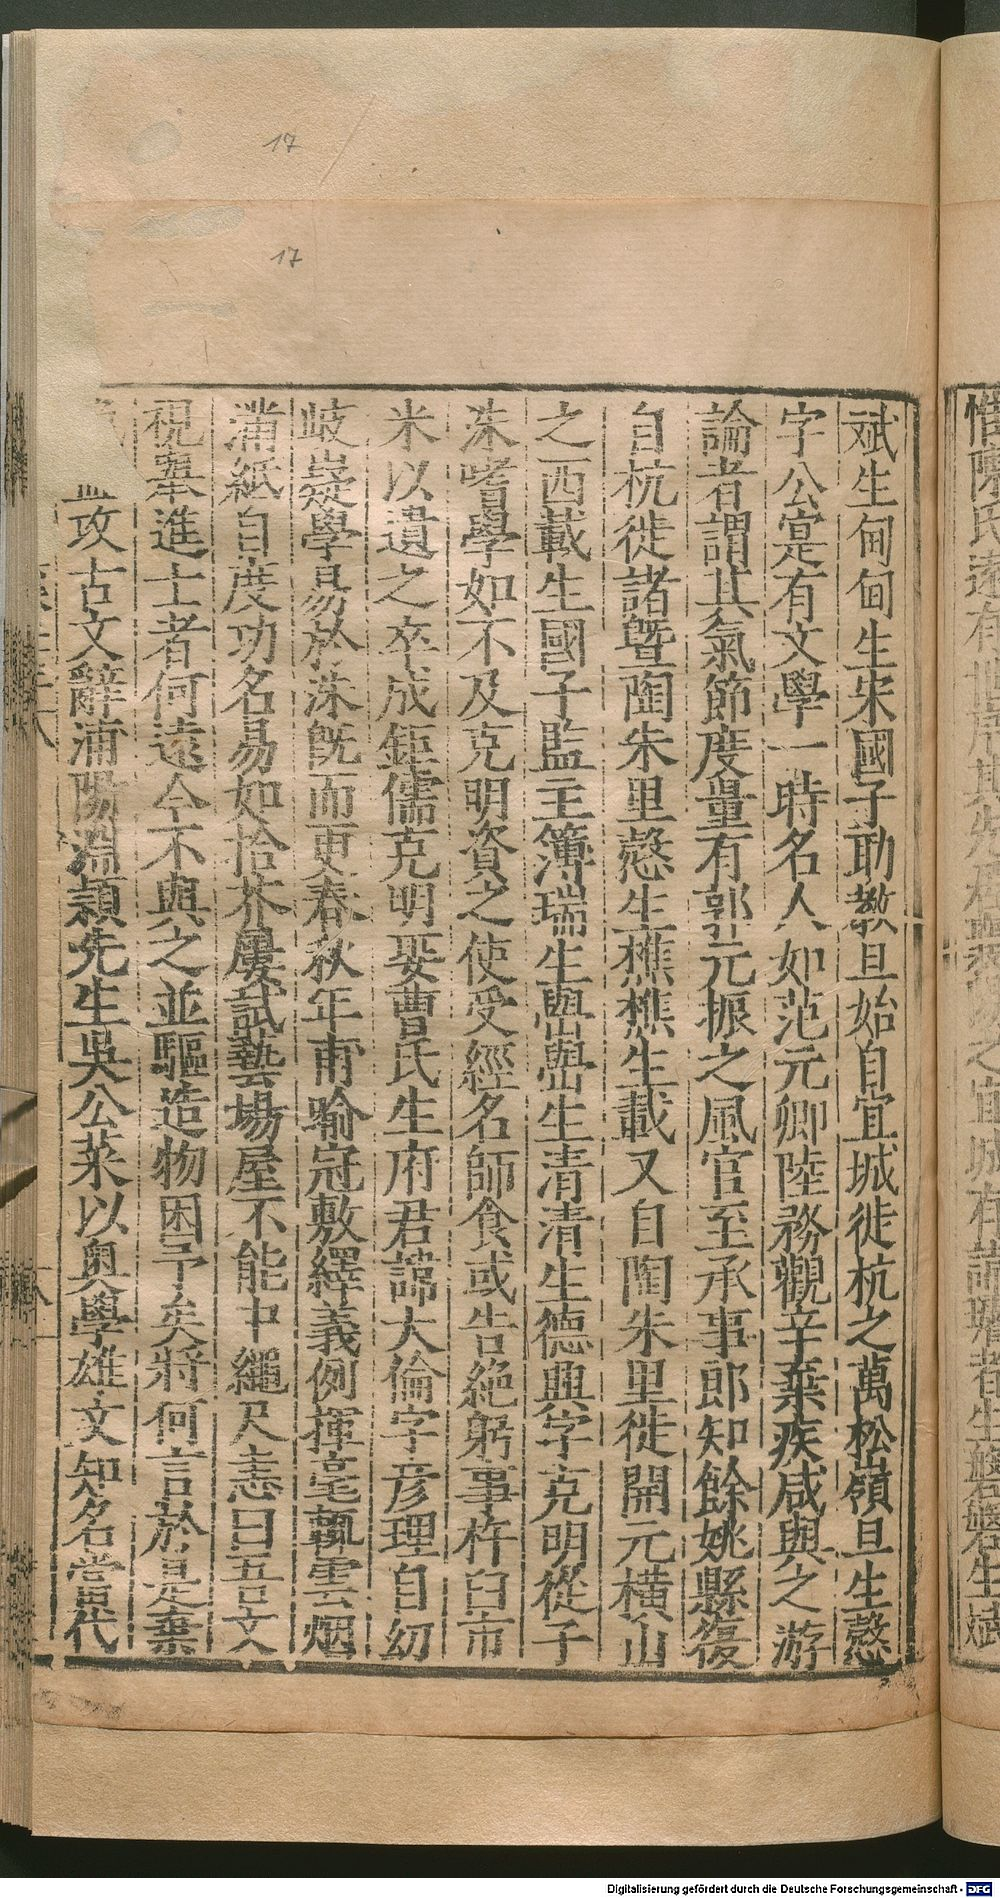 17
17
斌生甸甸生宋國子助教旦始自宜城徙杭之萬松嶺旦生愨
字公寔有文學一時名人如范元卿陸務觀辛棄疾咸與之游
論者謂其氣節度量有郭元振之風官至承事郎知餘姚縣復
自杭徙諸曁陶朱里愨生樵樵生載又自陶朱里徙開元橫山
之西載生國子監主簿瑞生壆壆生清清生德興字克明從子
洙嗜學如不及克明資之使受經名師食或告絶躬事杵臼市
米以遺之卒成鉅儒克明娶曹氏生府君諱大倫字彦理自幼
岐嶷學易於洙旣而更春秋年甫喻冠敷繹義例揮毫執雲烟
滿紙自度功名易如拾芥屢試藝場屋不能中繩尺恚曰吾文
視舉進士者何遠今不與之並驅造物困予矣將何言於是棄
攻古文辭浦陽淵穎先生吳公萊以奥學雄文知名當代
Digitalisierung gefördert durch die Deutsche Forschungsgemeinschaft - DFG